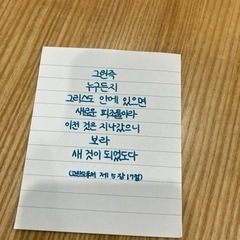 그런즉
누구든지
그리스도 안에 있으면
새로운 피조물이라
이전 것은 지나갔으니
보라
새 것이 되었도다
(고린도후서 제 5장 17절)